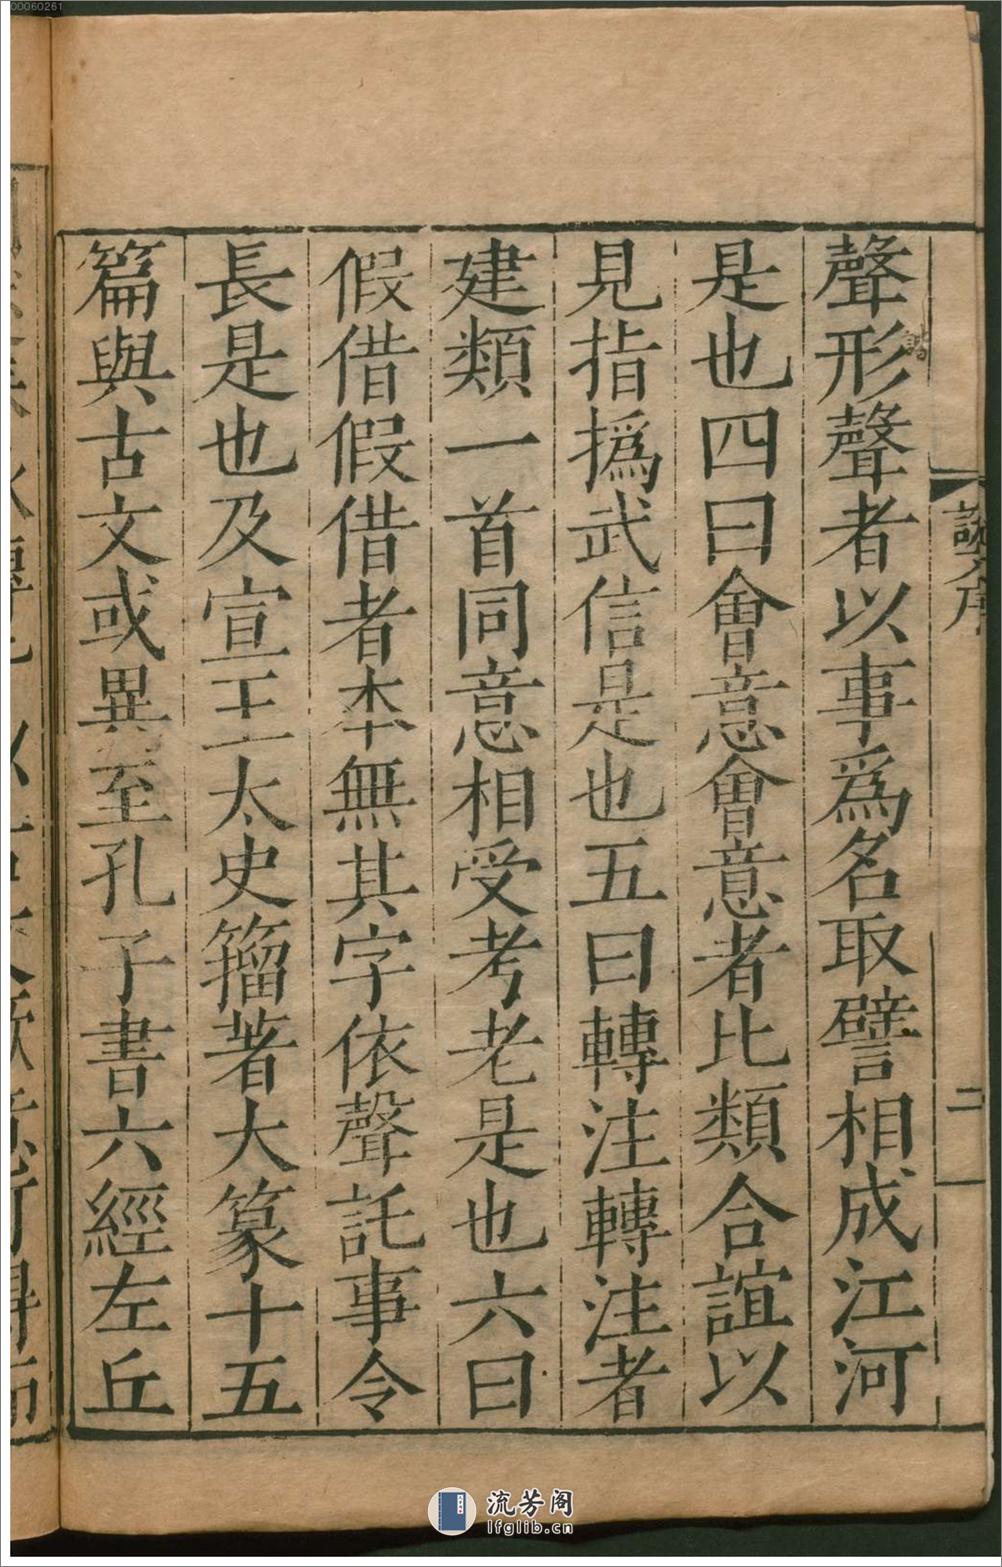 00060261
聲形聲者以事爲名取譬相成江河
是也四曰會意會意者比類合誼以
見指撝武信是也五曰轉注轉注者
建類一首同意相受考老是也六曰
假借假借者本無其字依聲託事令
長是也及宣王太史籀著大篆十五
篇與古文或異至孔子書六經左丘
二
流芳阁
lfglib.cn